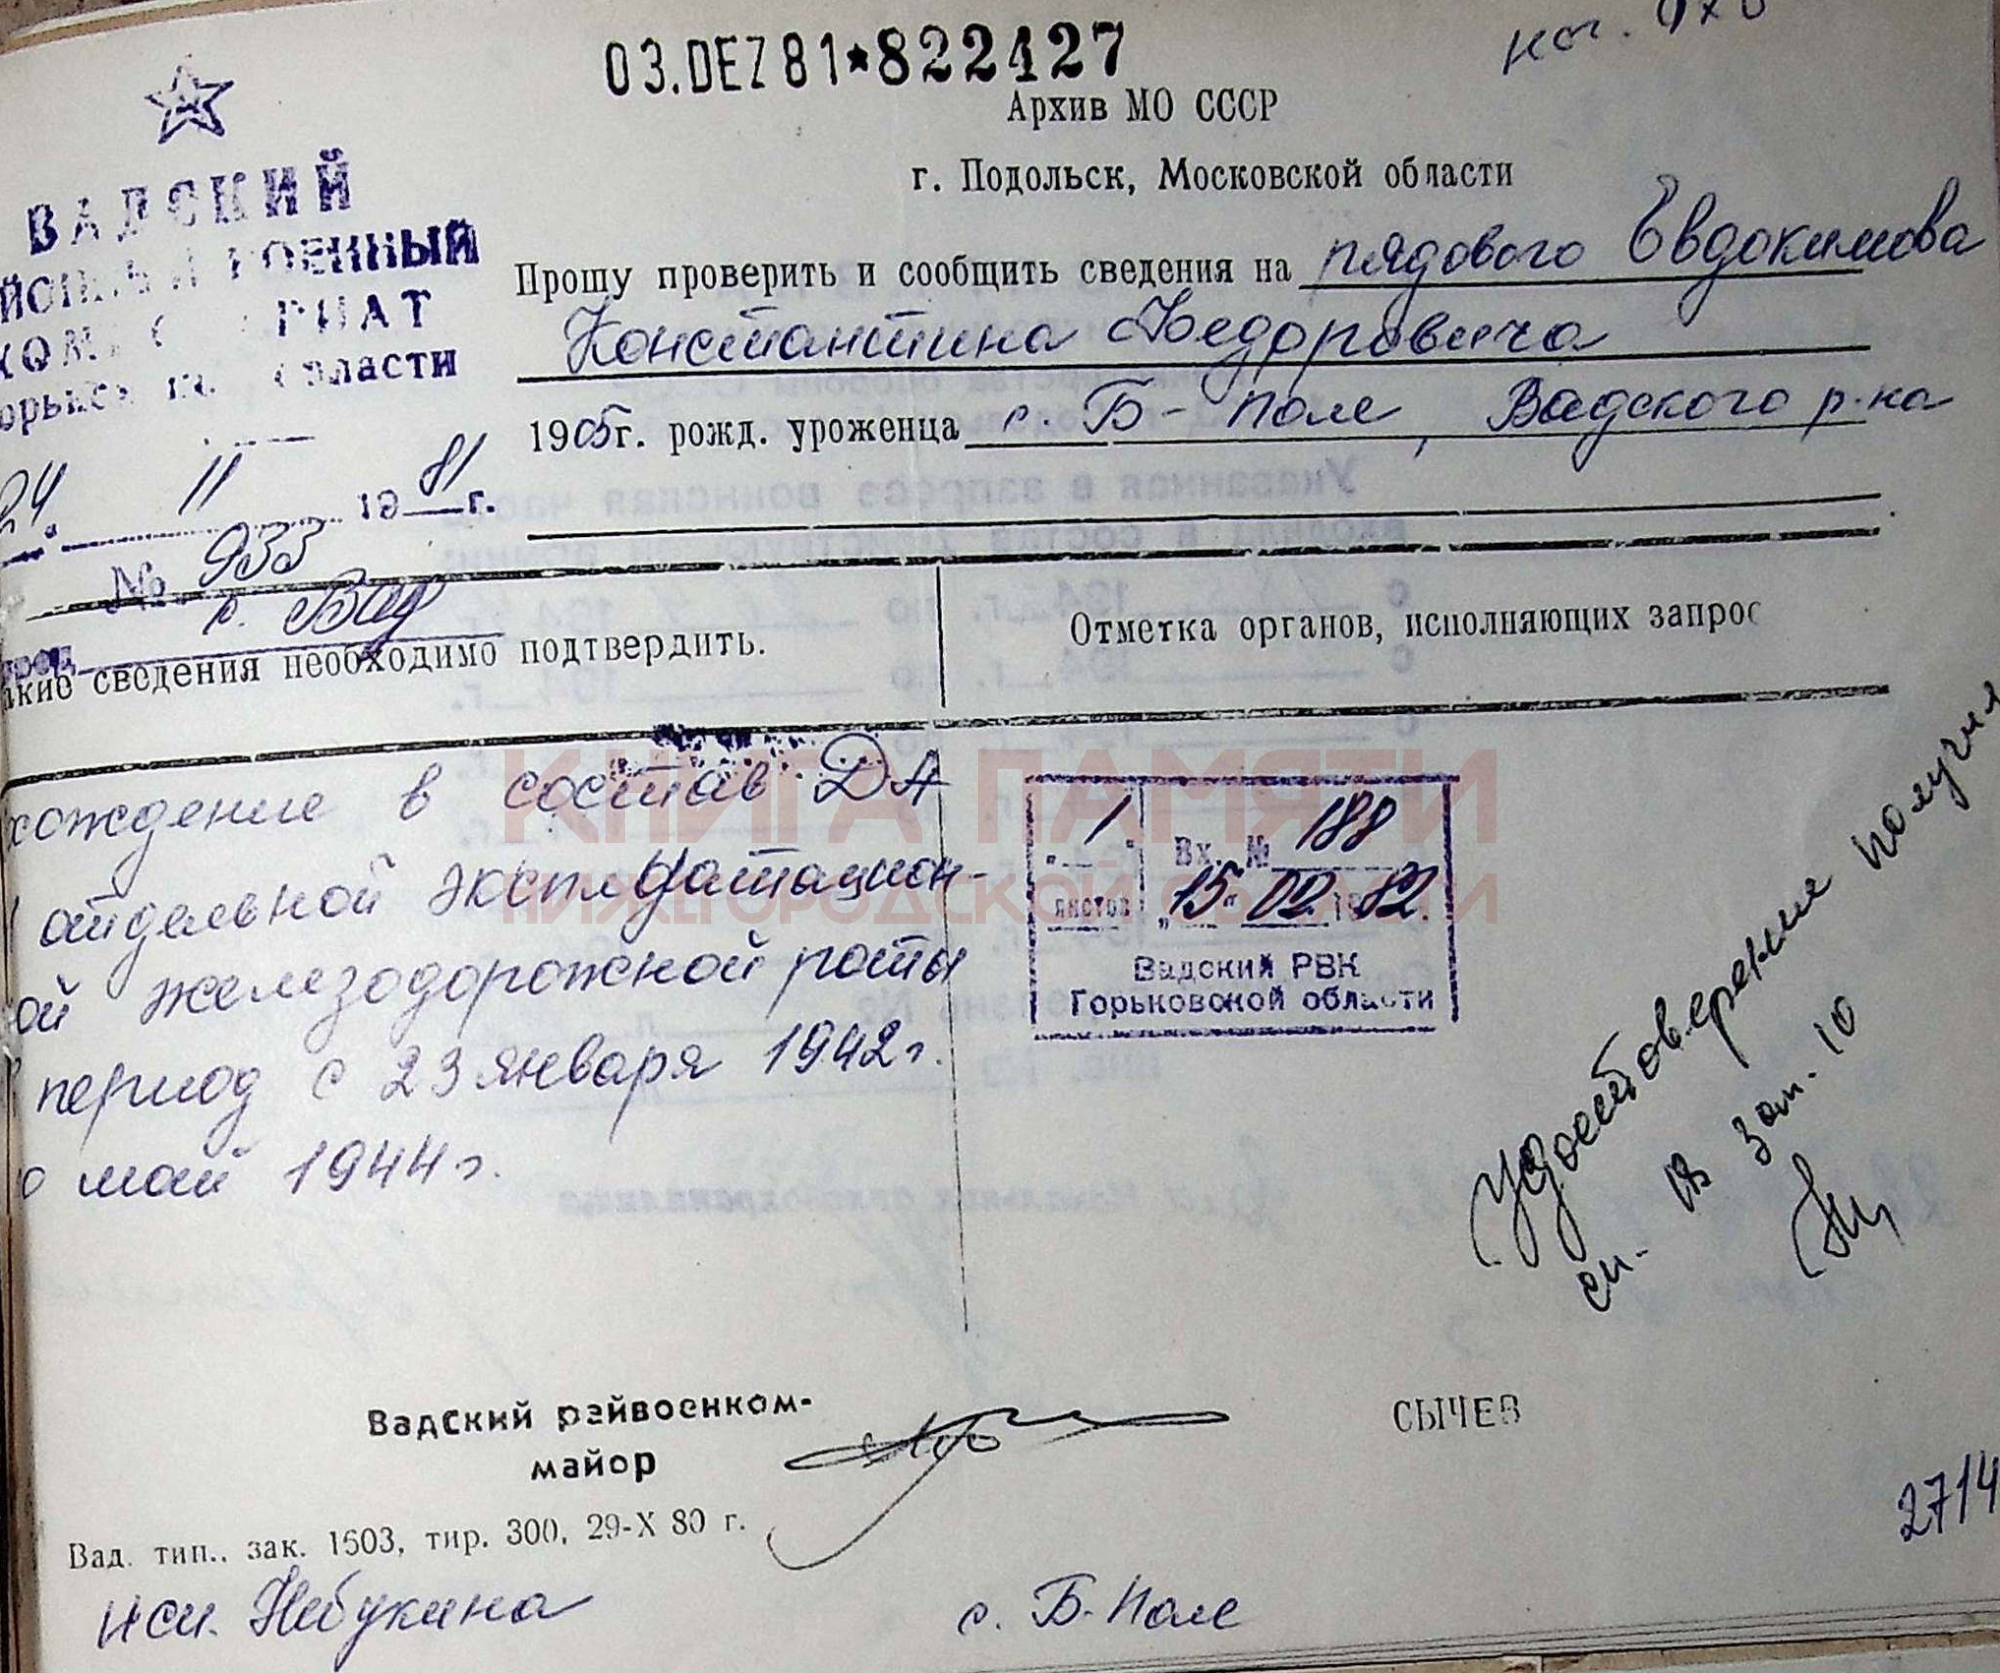 03.DEZ 81*822427
Архив МО СССР
г. Подольск, Московской области
ВАДСКИЙ
ВОЕННЫЙ
области
24. 11 1981 г.
№ 933
с. Вад
Прошу проверить и сообщить сведения на рядового Евдокимова
Константина Федоровича
1905г. рожд. уроженца с. Б-Поле, Вадского р-на
сведения необходимо подтвердить.
Отметка органов, исполняющих запрос
хождение в состав ДА
отдельной эксплуатацион-
ой железодорожной роты
период с 23 января 1942 г.
о май 1944 г.
КНИГА ПАМЯТИ
НИЖЕГОРОДСКОЙ ОБЛАСТИ
„ 1 " листов
Вх. № 188
„15" 02 1982.
Вадский РВК
Горьковской области
Удостоверение получил
сп. 18 зап. 10
Вадский райвоенком-
майор
СЫЧЕВ
Вад. тип., зак. 1503, тир. 300, 29-X 80 г.
исп. Небукина
с. Б-Поле
2714